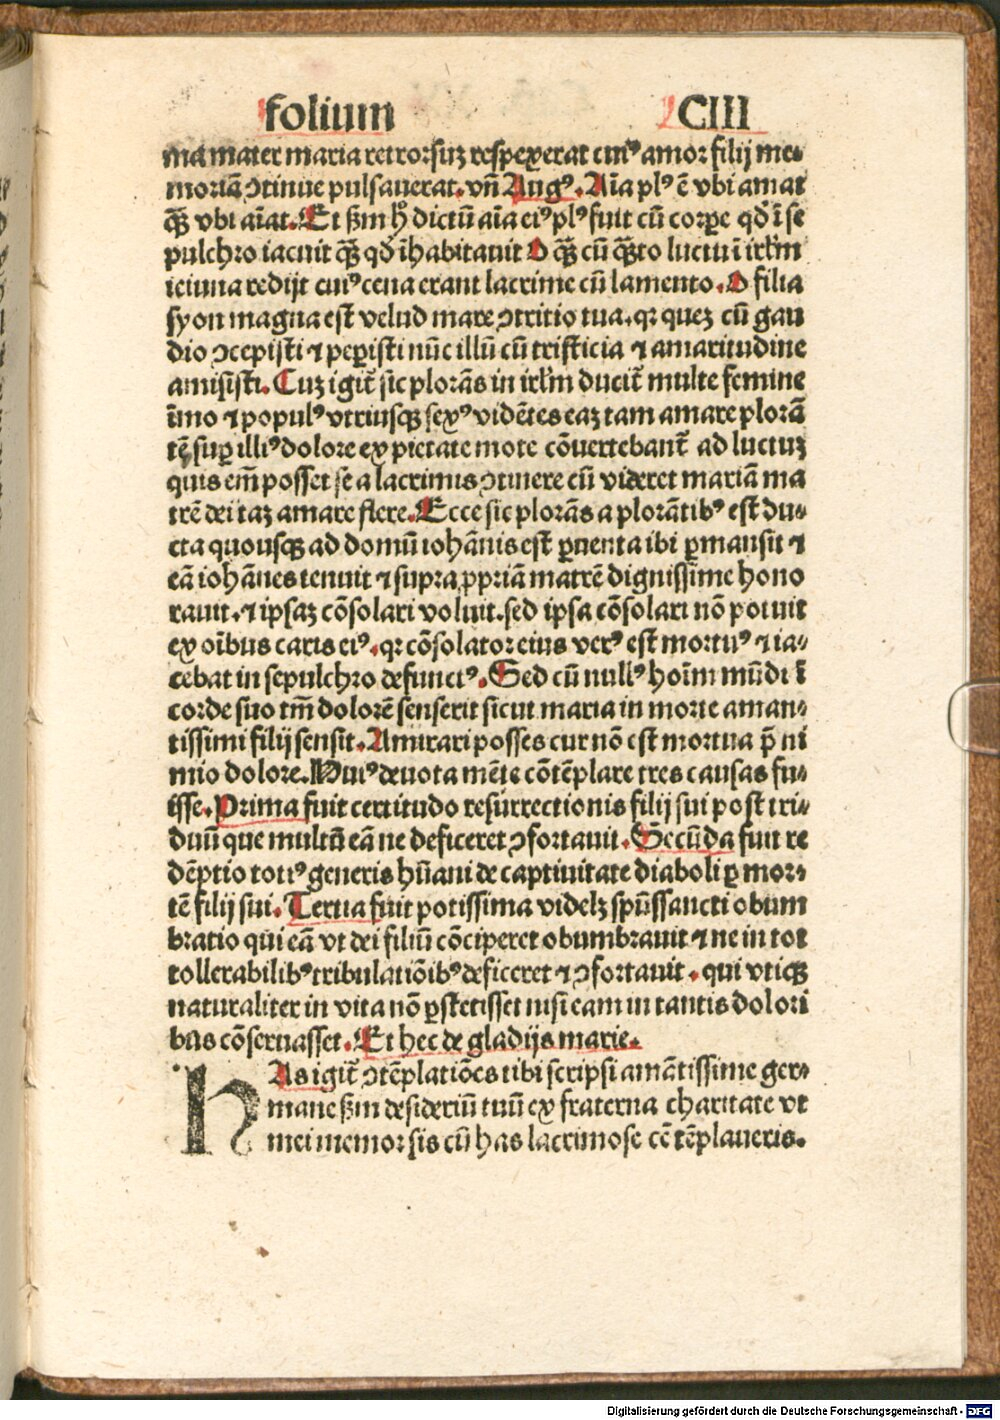 folium CIII
ma mater maria retrorsuꝫ respexerat cuiꝰ amor filij me⸗
moriā ꝯtinue pulsauerat. vn̄ Augꝰ. Aīa plꝰ ē vbi amat
qȝ vbi aīat. Et ßm hͦ dictū aīa eiꝰ plꝰ fuit cū corꝑe qď ī se
pulchro iacuit qȝ qď īhabitauit O qȝ cū qȝto luctu ī irl̄m
ieiuna redijt cuiꝰ cena erant lacrime cū lamento. O filia
syon magna est velud mare ꝯtritio tua. qꝛ queꝫ cū gau
dio ꝯcepisti ⁊ peꝑisti nūc illū cū tristicia ⁊ amaritudine
amisisti. Cuꝫ igit̄ sic plorās in irl̄m ducit̄ multe femine
īmo ⁊ populꝰ vtriusqꝫ sexꝰ vidētes eaꝫ tam amare plorā
tē suꝑ illiꝰ dolore ex pietate mote cōuertebant̄ ad luctuꝫ
quis em̄ posset se a lacrimis ꝯtinere cū videret mariā ma
trē dei taꝫ amare flere. Ecce sic plorās a plorātibꝰ est du⸗
cta quousqꝫ ad domū iohānis est ꝑuenta ibi ꝑmansit ⁊
eā iohānes tenuit ⁊ supra ꝓpriā matrē dignissime hono
rauit. ⁊ ipsaꝫ cōsolari voluit. sed ipsa cōsolari nō potuit
ex oībus caris eiꝰ. qꝛ cōsolator eius verꝰ est mortuꝰ ⁊ ia⸗
cebat in sepulchro defunctꝰ. Sed cū nullꝰ hoīm mūdi ī
corde suo tm̄ dolorē senserit sicut maria in morte aman⸗
tissimi filij sensit. Amirari posses cur nō est mortua p̄ ni
mio dolore. Huiꝰ deuota mēte cōtēplare tres causas fu⸗
isse. Prima fuit certitudo resurrectionis filij sui post tri⸗
duū que multū eā ne deficeret ꝯfortauit. Secūda fuit re
dēptio totiꝰ generis hūani de captiuitate diaboli ꝑ mor⸗
tē filij sui. Tertia fuit potissima videlꝫ spūssancti obum
bratio qui eā vt dei filiū cōciperet obumbrauit ⁊ ne in tot
tollerabilibꝰ tribulatiōibꝰ deficeret ⁊ ꝯfortauit. qui vtiqꝫ
naturaliter in vita nō ꝑstetisset nisi eam in tantis dolori
bus cōseruasset. Et hec de gladijs marie.
HAs igit̄ ꝯtēplatiōes tibi scripsi amātissime ger⸗
mane ßm desideriū tuū ex fraterna charitate vt
mei memor sis cū has lacrimose cōtēplaueris.
Digitalisierung gefördert durch die Deutsche Forschungsgemeinschaft - DFG